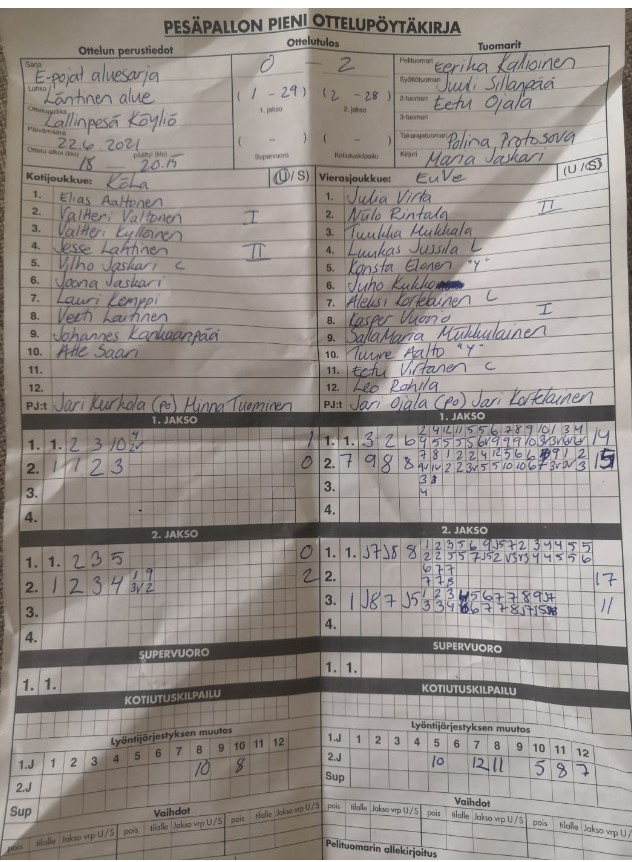 PESÄPALLON PIENI OTTELUPÖYTÄKIRJA
Ottelun perustiedot Ottelutulos Tuomarit
Sarja E-pojat aluesarja 0 - 2 Pelituomari Eerika Kallioinen
Lohko Läntinen alue (1 - 29) (2 - 28) Syöttötuomari Juuli Sillanpää
1. jakso 2. jakso 2-tuomari Eetu Ojala
Ottelupaikka Lallinpesä Köyliö 3-tuomari
Päivämäärä 22.6.2021 ( - ) ( - ) Takarajatuomari Polina Protosova
Ottelu alkoi (klo) 18 päättyi (klo) 20.15 Supervuoro Kotiutuskilpailu Kirjuri Maria Jaskari
Kotijoukkue: KöLa (U/S) Vierasjoukkue: EuVe (U/S)
1. Elias Aaltonen 1. Julia Virta
2. Valtteri Valtonen I 2. Nalo Rintala II
3. Valtteri Kylloinen 3. Tuukka Mukkala
4. Jesse Lahtinen II 4. Luukas Jussila L
5. Vilho Jaskari C 5. Konsta Elonen "Y"
6. Joona Jaskari 6. Juho
7. Lauri Kemppi 7. Aleksi Kortelainen L
8. Veeti Laitinen 8. Kasper Vuorio I
9. Johannes Kankaanpää 9. SalaMaria Mukkulainen
10. Atte Saari 10. Tuure Aalto "Y"
11. 11. Eetu Virtanen C
12. 12. Leo Rohila
PJ:t Jari Kurhela (po) Minna Tuominen PJ:t Jari Ojala (po) Jari Kortelainen
1. JAKSO 1. JAKSO
1. 1. 2 3 10 1 1. 1. 3 2 6 14
2. 1 1 2 3 0 2. 7 9 8 8 15
3. 3.
4. 4.
2. JAKSO 2. JAKSO
1. 1. 2 3 5 0 1. 1. J7 J8 8
2. 1 2 3 4 2 2. 17
3. 3. 1 J8 7 J5 11
4. 4.
SUPERVUORO SUPERVUORO
1. 1. 1. 1.
KOTIUTUSKILPAILU KOTIUTUSKILPAILU
Lyöntijärjestyksen muutos Lyöntijärjestyksen muutos
1.J 1 2 3 4 5 6 7 8 9 10 11 12 1.J 1 2 3 4 5 6 7 8 9 10 11 12
2.J 10 8 2.J 10 12 11 5 8 7
Sup Sup
Vaihdot Vaihdot
pois tilalle Jakso vrp U/S pois tilalle Jakso vrp U/S pois tilalle Jakso vrp U/S pois tilalle Jakso vrp U/S pois tilalle Jakso vrp U/S pois tilalle Jakso vrp U/S
Pelituomarin allekirjoitus